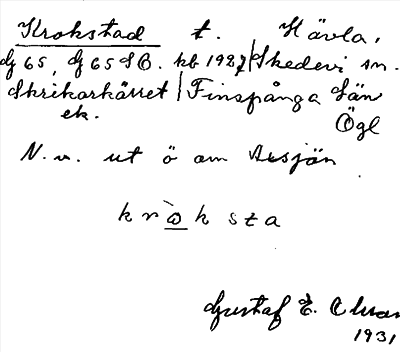 Krokstad t. Hävla,
dj 65, dj 65 SB. kb 1927 Skedevi sn.
Skrikarhärret Finspånga län
ek. Ögl
N. v. ut ö om
k r ò k s t a
Gustaf E.
1931